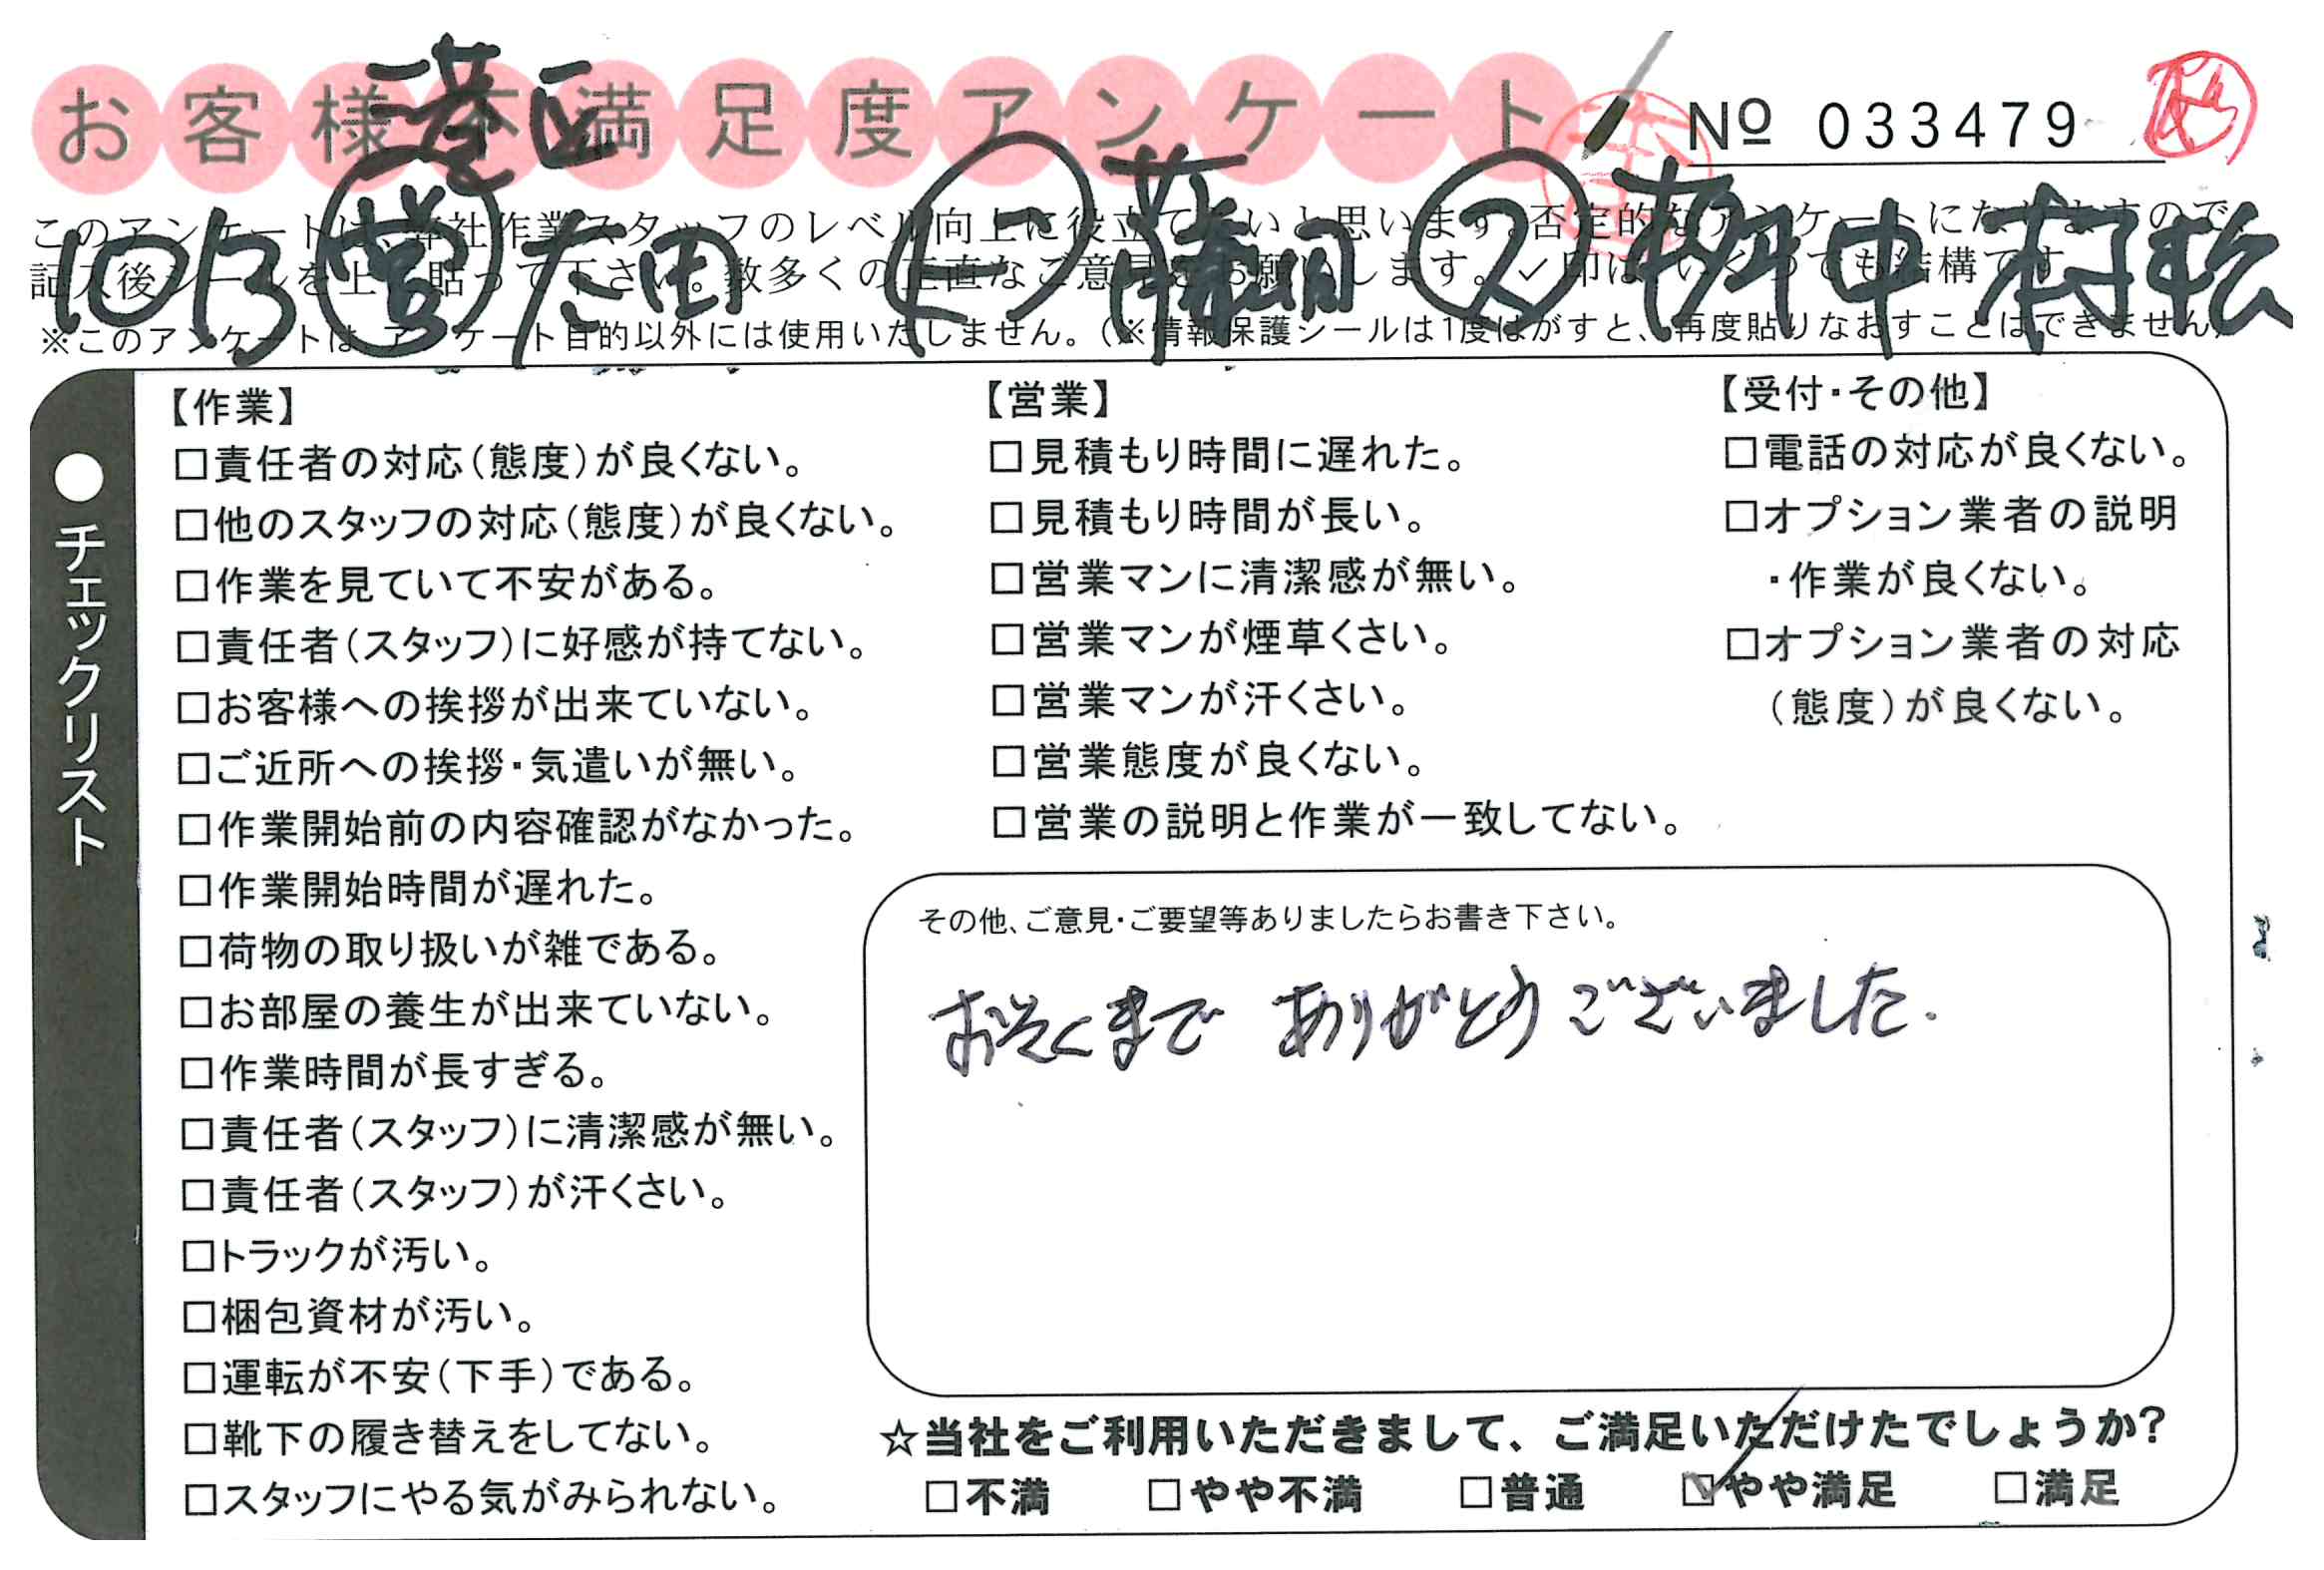 お客様不満足度アンケート
港区
№ 033479
このアンケートは、弊社作業スタッフのレベル向上に役立てたいと思います。否定的なアンケートになりますので、
記入後シールを上に貼って下さい。数多くの正直なご意見をお願いします。✓印はいくつでも結構です。
10/3 営 太田 ② 中 村松
※このアンケートは、アンケート目的以外には使用いたしません。(※情報保護シールは1度はがすと、再度貼りなおすことはできません)
●チェックリスト
【作業】
□責任者の対応(態度)が良くない。
□他のスタッフの対応(態度)が良くない。
□作業を見ていて不安がある。
□責任者(スタッフ)に好感が持てない。
□お客様への挨拶が出来ていない。
□ご近所への挨拶・気遣いが無い。
□作業開始前の内容確認がなかった。
□作業開始時間が遅れた。
□荷物の取り扱いが雑である。
□お部屋の養生が出来ていない。
□作業時間が長すぎる。
□責任者(スタッフ)に清潔感が無い。
□責任者(スタッフ)が汗くさい。
□トラックが汚い。
□梱包資材が汚い。
□運転が不安(下手)である。
□靴下の履き替えをしてない。
□スタッフにやる気がみられない。
【営業】
□見積もり時間に遅れた。
□見積もり時間が長い。
□営業マンに清潔感が無い。
□営業マンが煙草くさい。
□営業マンが汗くさい。
□営業態度が良くない。
□営業の説明と作業が一致してない。
【受付・その他】
□電話の対応が良くない。
□オプション業者の説明
・作業が良くない。
□オプション業者の対応
(態度)が良くない。
その他、ご意見・ご要望等ありましたらお書き下さい。
おそくまで ありがとう ございました.
☆当社をご利用いただきまして、ご満足いただけたでしょうか?
□不満 □やや不満 □普通 ☑やや満足 □満足